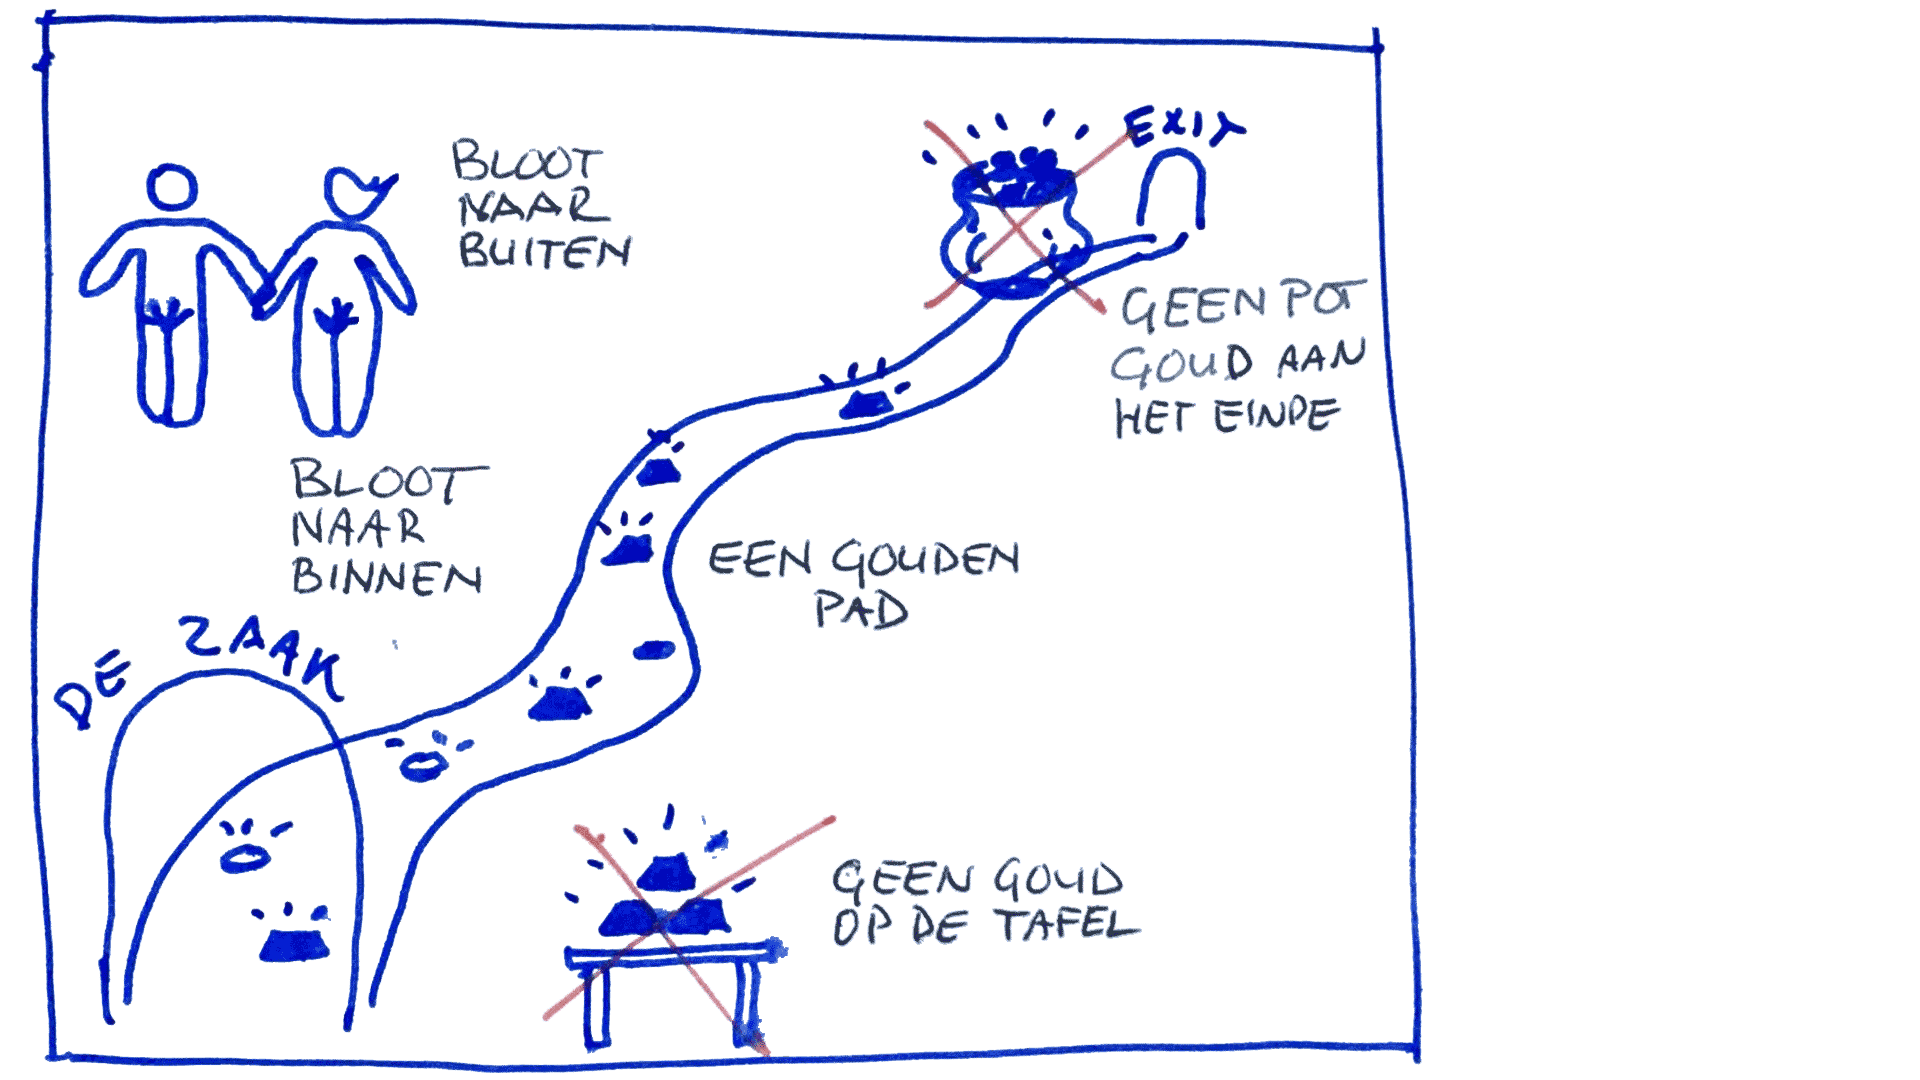 BLOOT
NAAR
BUITEN
EXIT
GEEN POT
GOUD AAN
HET EINDE
BLOOT
NAAR
BINNEN
EEN GOUDEN
PAD
DE ZAAK
GEEN GOUD
OP DE TAFEL